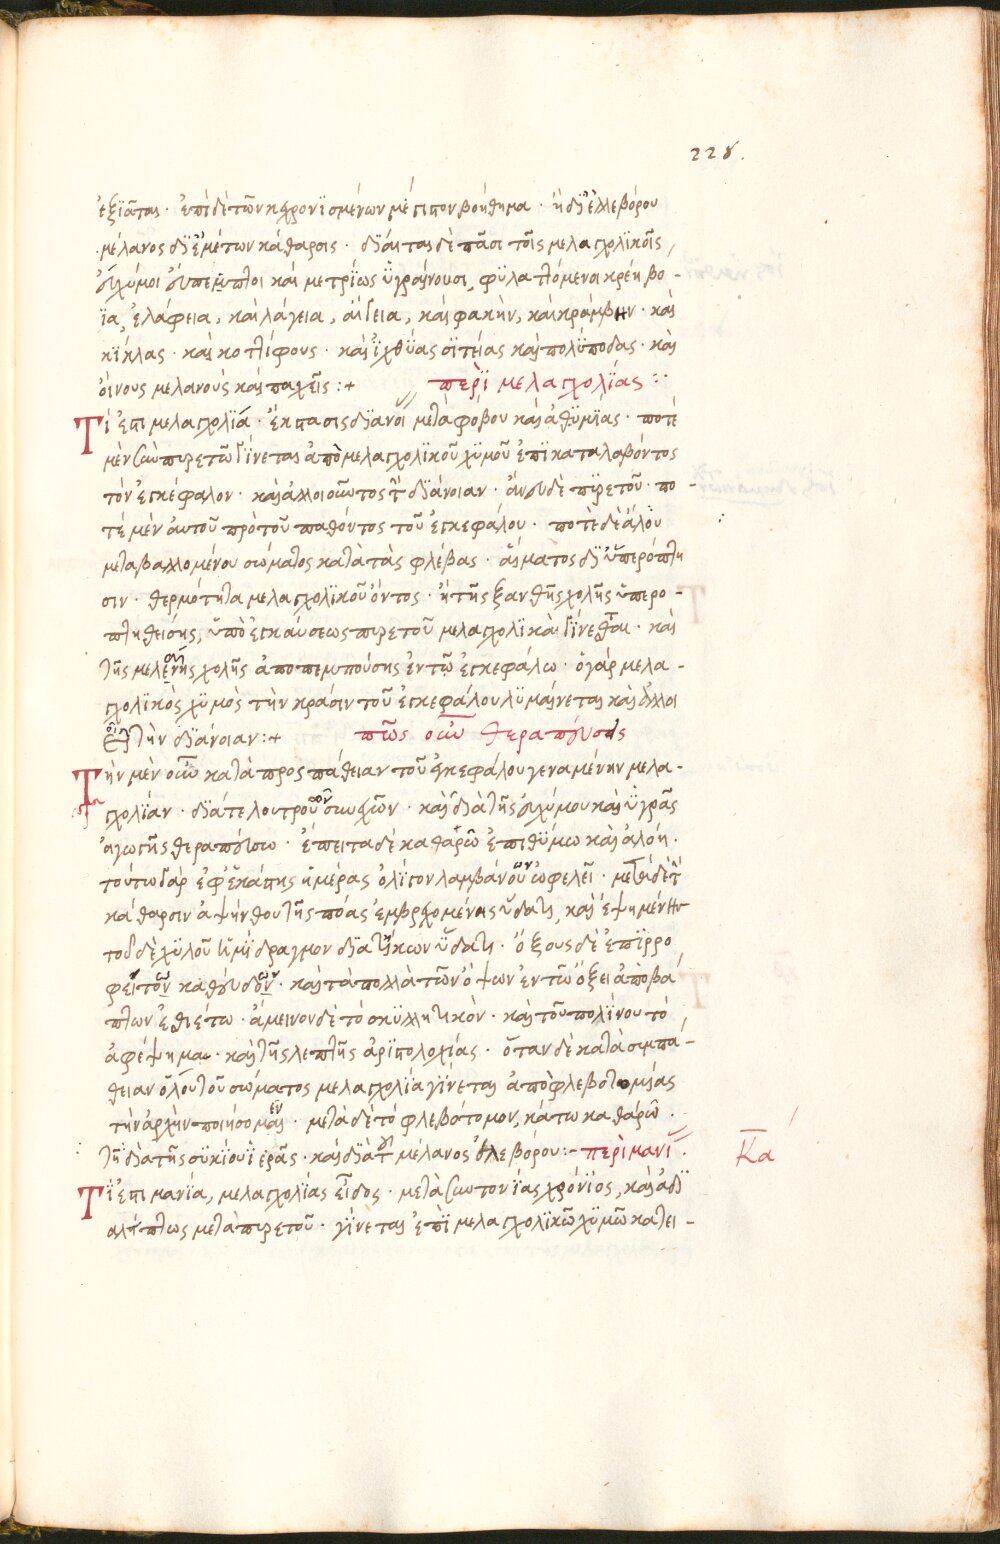 228.
ἐξιᾶται · ἐπὶ δὲ τῶν κεχρονϊσμένων μέγιστον βοήθημα · ἡ δϊ ἐλλεβόρου
μέλανος δϊ ἐμέτων κάθαρσις · δϊαιται δὲ πᾶσι τοῖς μελαγχολϊκοῖς,
εὔχυμοι εὔπεπτοι καὶ μετρΐως ὑγραίνουσι, φϋλαττόμενοι κρέη βο -
ϊα, ἐλάφεια, καὶ λάγεια, αἴγεια, καὶ φακὴν, καὶ κράμβην · καὶ
κίχλας · καὶ κοττΐφους · καὶ ἰχθύας σϊτείας καὶ πολύποδας · καὶ
οἴνους μελανοὺς καὶ παχεῖς :+ περὶ μελαγχολίας :·
Τί ἐστι μελαγχολϊά · ἔκστασις δϊανοί μετὰ φόβου καὶ ἀθϋμΐας · ποτὲ
μὲν σὺν πυρετῶ γίνεται ἀπὸ μελαγχολϊκοῦ χϋμοῦ ἐπικαταλαβόντος
τὸν ἐγκέφαλον · καὶ ἀλλοιοῦντος τ δϊάνοιαν · ἄνευ δὲ πϋρετοῦ · πο -
τέ μὲν αὐτοῦ πρὸ τοῦ παθόντος τοῦ ἐγκεφάλου · ποτὲ δὲ ὅλου
μεταβαλλομένου σώματος κατὰ τὰς φλέβας · αἵματος δϊ ὑπερόπτη
σιν · θερμότητα μελαγχολϊκοῦ ὄντος · ἢ τῆς ξανθῆς χολῆς ὑπερο -
πτηθείσης, ὑπὸ ἐγκαύσεως πυρετοῦ μελαγχολϊκὰ γίνεσθαι · καὶ
τῆς μελαίνης χολῆς ἀποπεμπούσης ἐν τῶ ἐγκεφάλω · ὁ γὰρ μελα -
γχολϊκὸς χϋμὸς τὴν κράσιν τοῦ ἐγκεφάλου λϋμαίνεται καὶ ἀλλοι
οῖ τὴν δϊάνοιαν :+ πῶς οὖν θεραπεύσεις
Τὴν μὲν οὖν κατὰ προσπάθειαν τοῦ ἐγκεφάλου γεναμένην μελα -
γχολΐαν · δϊά τε λουτροῦ συνεχῶν · καὶ δϊὰ τῆς εὐχύμου καὶ ὑγρᾶς
ἀγωγῆς θεραπεύσω · ἔπειτα δὲ καθαρῶ ἐπιθύμω καὶ ἀλόη ·
τούτω γὰρ ἐφ ἑκάστης ἡμέρας ὀλίγον λαμβάνουν ὠφελεῖ · μετὰ δὲ τ
κάθαρσιν ἀψήνθου τῆς πόας ἐμβρεχομένης ὕδατι, καὶ ἑψημένην
τοῦ δὲ χϋλοῦ ἡμίδραγμον δϊατήκων ὕδατι · ὄξους δὲ ἐπΐρρο
φεῖν τῶν καθεύδων · καὶ τὰ πολλὰ τῶν ὄψων ἐν τῶ ὄξει ἀποβά
πτων ἐθιέτω · ἄμεινον δὲ τὸ σκϋλλητικὸν · καὶ τοῦ πολΐου τὸ
ἀφέψημα · καὶ τῆς λεπτῆς ἀρϊστολοχίας · ὅταν δὲ κατὰ συμπά -
θειαν ὅλου τοῦ σώματος μελαγχολία γίνεται ἀπὸ φλεβοτομΐας
τὴν ἀρχὴν ποιησόμεν · μετὰ δὲ τὸ φλεβότομον, κάτω καθάρῶ ·
τῆ δϊὰ τῆς σϋκίου ἱερᾶς · καὶ δϊὰ τ μέλανος ἐλεβόρου :- περὶ μανί · Κα
Τΐ ἐστι μανία, μελαγχολίας εἶδος · μετὰ συντονΐας χρόνϊος, καὶ ἀδϊ
αλήπτως μετὰ πυρετοῦ · γίνεται ἐπὶ μελαγχολϊκῶ χϋμῶ κατει -